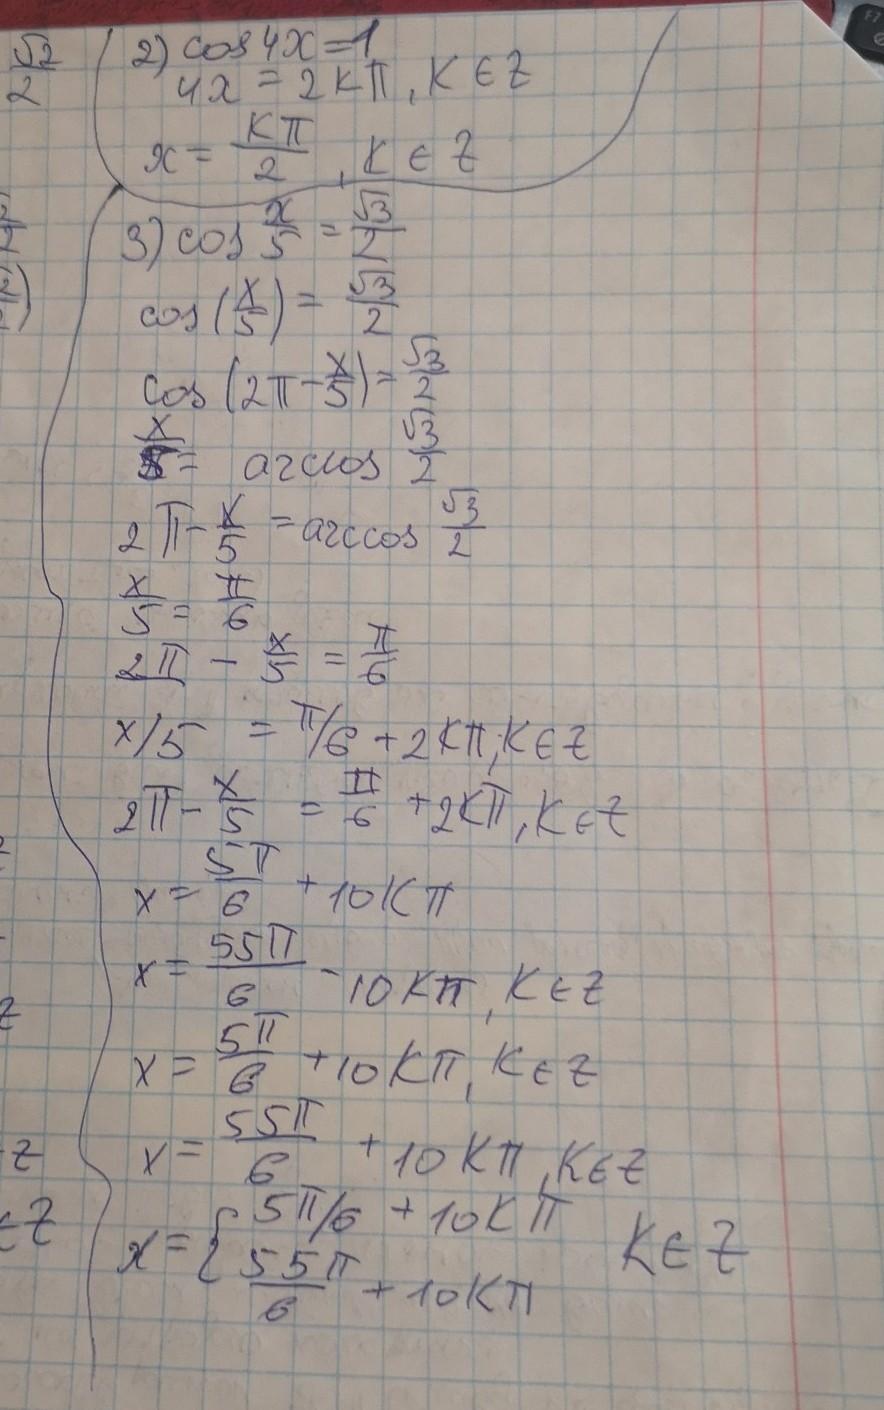 √2/2
2) cos4x=1
4x = 2Kπ, K∈Z
x = Kπ/2, K∈Z
3) cos x/5 = √3/2
cos(x/5) = √3/2
cos(2π-x/5)=√3/2
x/5 = arccos √3/2
2π-x/5 = arccos √3/2
x/5 = π/6
2π - x/5 = π/6
x/5 = π/6 + 2Kπ, K∈Z
2π-x/5 = π/6 + 2Kπ, K∈Z
x = 5π/6 + 10Kπ
x = 55π/6 - 10Kπ, K∈Z
x = 5π/6 + 10Kπ, K∈Z
x = 55π/6 + 10Kπ, K∈Z
x = { 5π/6 + 10Kπ
55π/6 + 10Kπ K∈Z